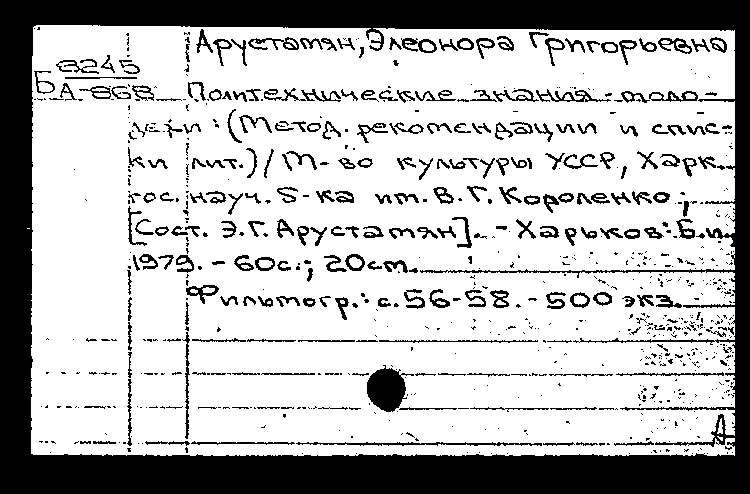 Арустамян, Элеонора Григорьевна
Б 8245
А-868
Политехнические знания - моло-
дежи : (Метод. рекомендации и спис-
ки лит.) / М-во культуры УССР, Харк.
гос. науч. б-ка им. В. Г. Короленко ;
[Сост. Э. Г. Арустамян]. - Харьков : Б. и.,
1979. - 60 с. ; 20 см.
Фильмогр.: с. 56-58. - 500 экз.
А